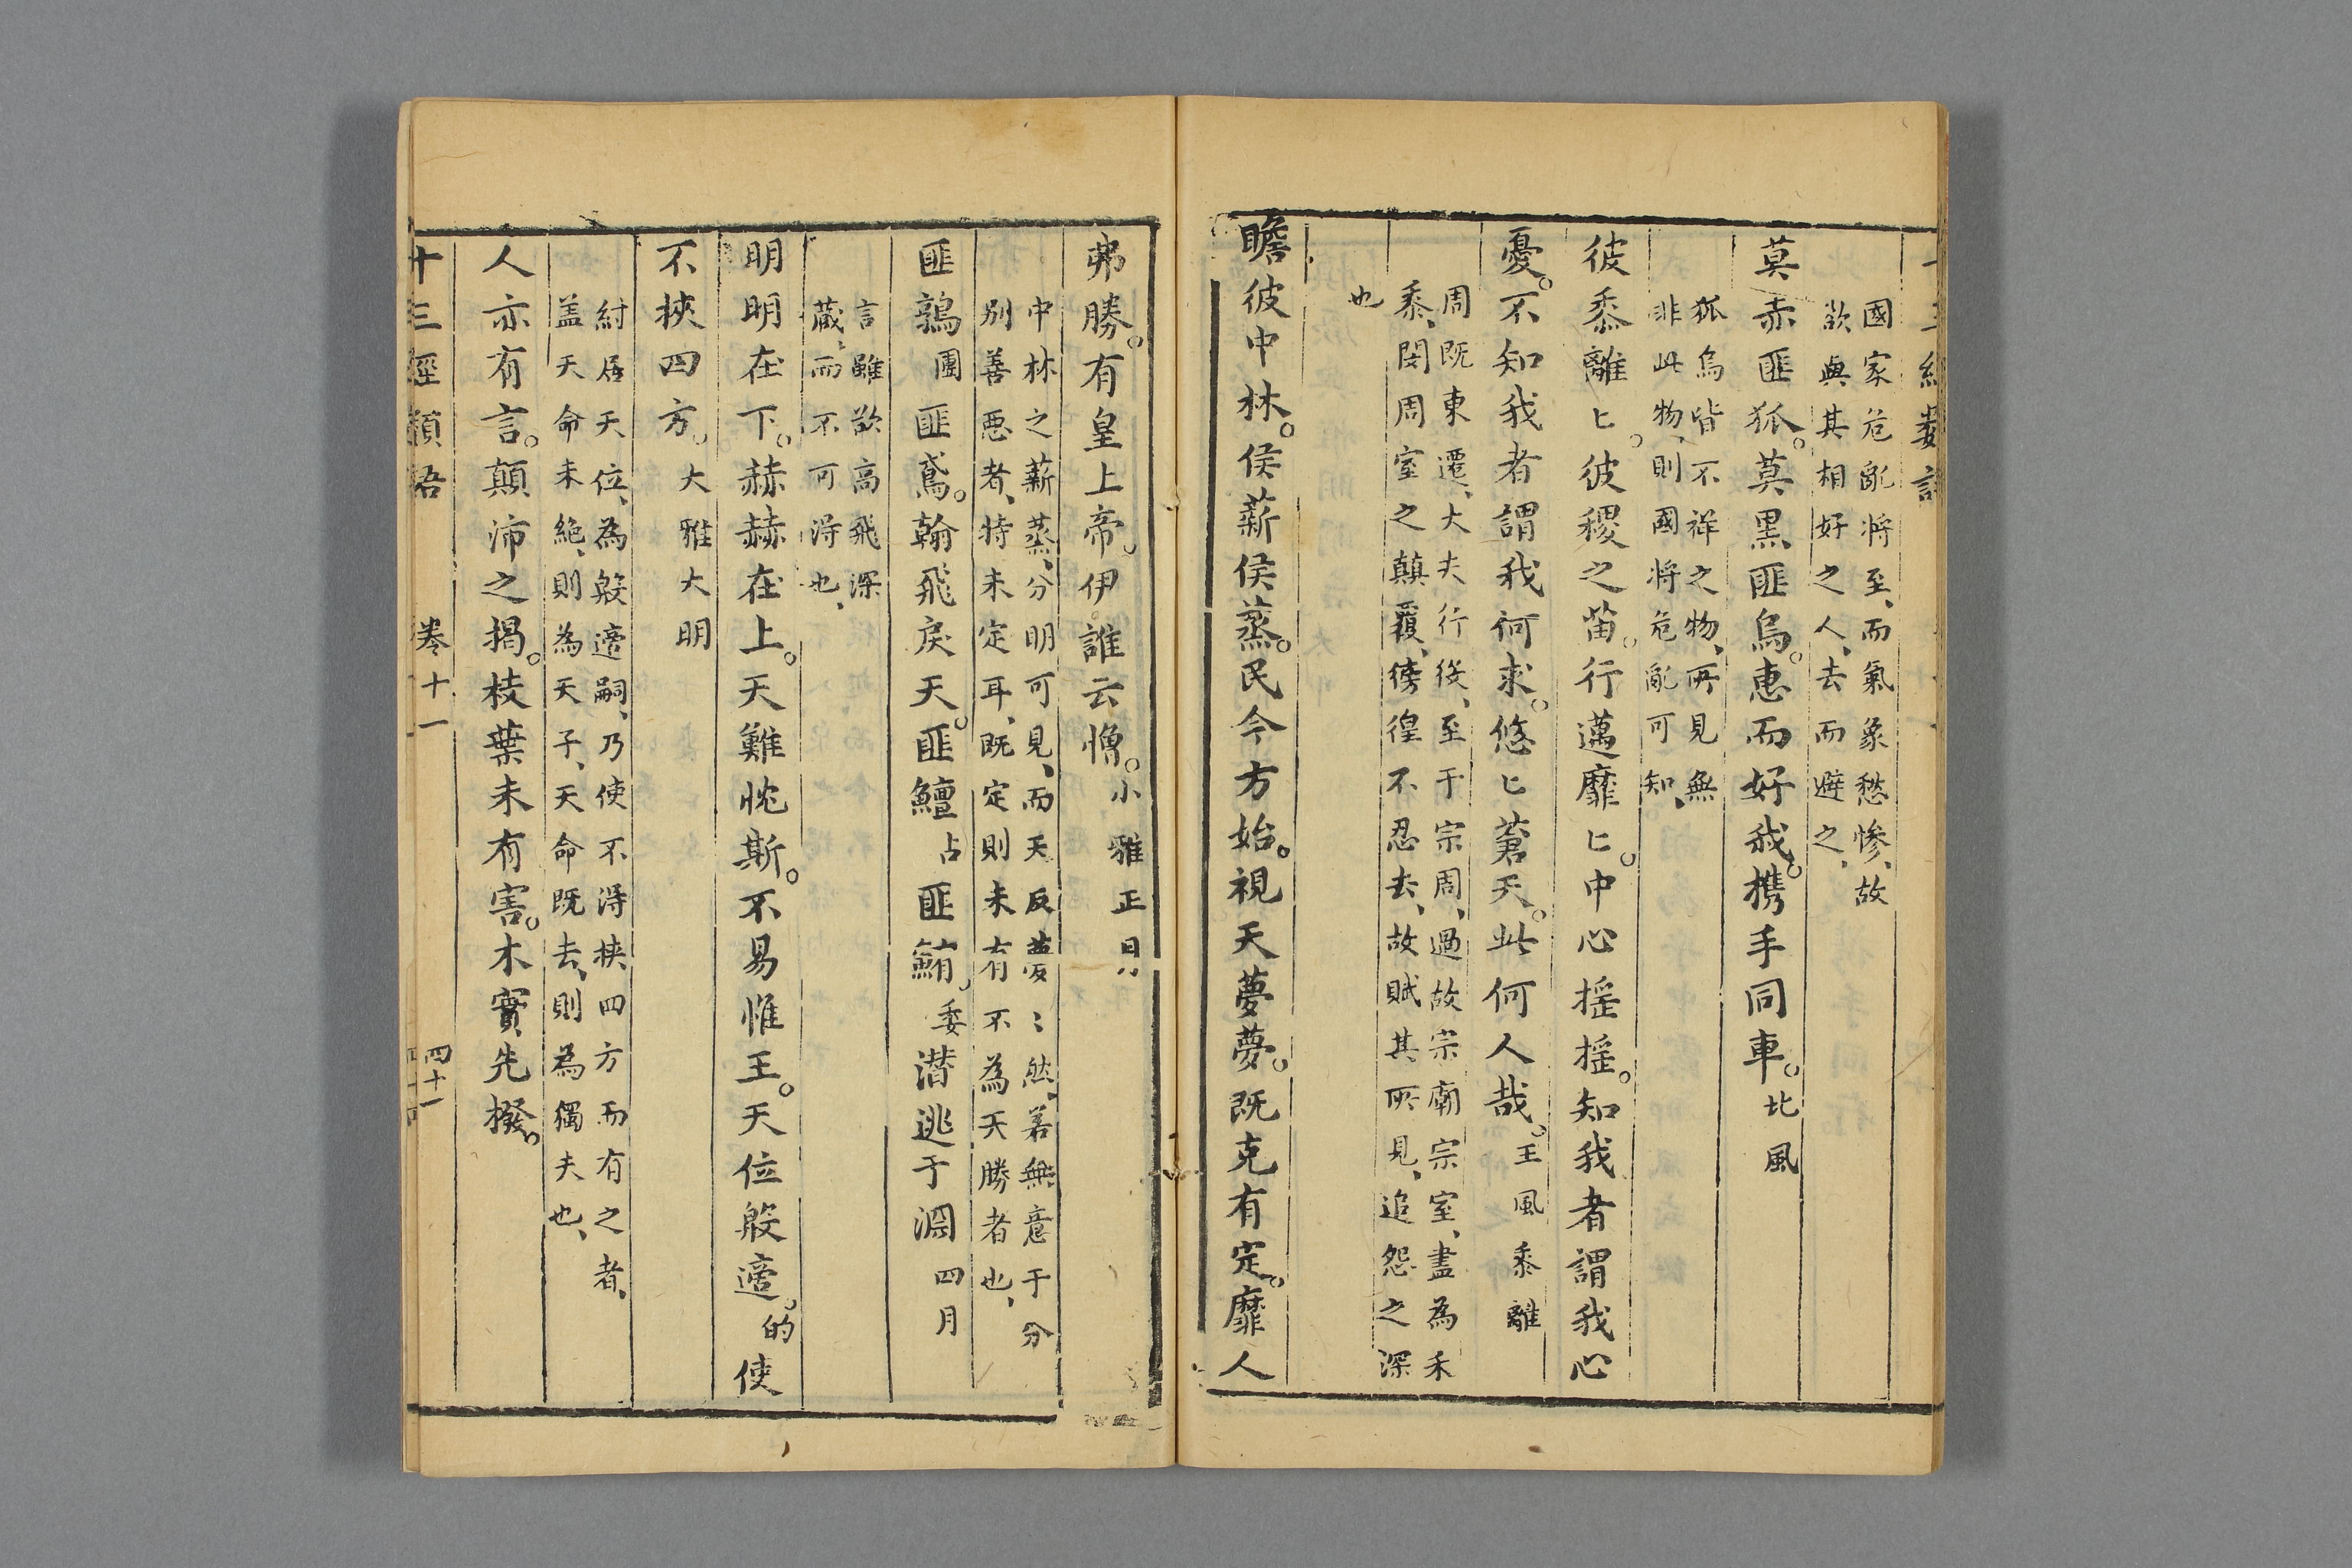 國家危亂将至、而氣象愁惨、故
欲與其相好之人、去而避之、
莫赤匪狐。莫黒匪烏。惠而好我。携手同車。北風
狐烏皆不祥之物、所見無
非此物、則國将危亂可知、
彼黍離〻。彼稷之苗。行邁靡〻。中心揺揺。知我者謂我心
憂。不知我者謂我何求。悠〻蒼天。此何人哉。王風黍離
周既東遷、大夫行役、至于宗周、過故宗廟宗室、盡為禾
黍、閔周室之顛覆、傍徨不忍去、故賦其所見、追怨之深
也
瞻彼中林。侯薪侯蒸。民今方始。視天夢夢。既克有定。靡人
弗勝。有皇上帝。伊誰云憎。小雅正月
中林之薪蒸、分明可見、而天反夢〻然、若無意于分
别善悪者、特未定耳、既定則未有不為天勝者也、
匪鶉團匪鳶。翰飛戾天。匪鱣占匪鮪。委潜逃于淵四月
言雖欲高飛深
藏、而不可得也、
明明在下。赫赫在上。天難忱斯。不易惟王。天位殷適。的使
不挾四方。大雅大明
紂居天位、為殷適嗣、乃使不得挾四方而有之者、
盖天命未絶、則為天子、天命既去、則為獨夫也、
人亦有言。顛沛之揭。枝葉未有害。本實先撥。
十三經類語 卷十一 四十一